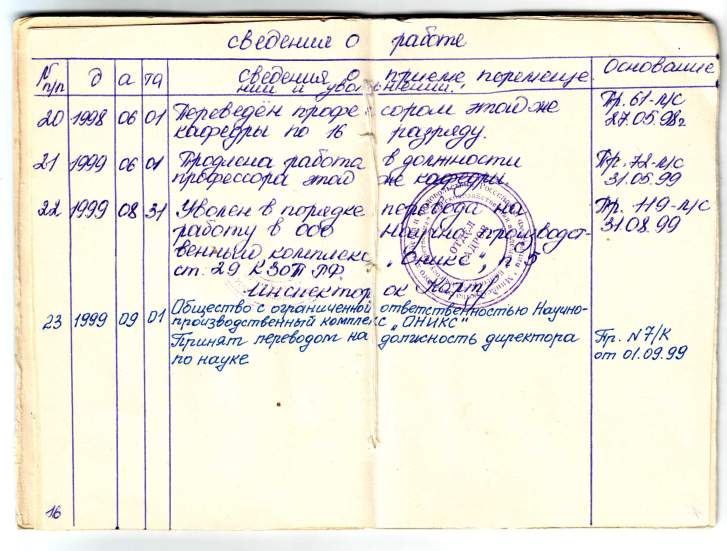 сведения о работе
№ п/п дата сведения о приеме, перемеще- Основание
нии и увольнении.
20 1998 06 01 Переведён профессором этой же Пр. 61-л/с
кафедры по 16 разряду. 27.05.98г
21 1999 06 01 Продлена работа в должности Пр. 72-л/с
профессора этой же кафедры. 31.05.99
22 1999 08 31 Уволен в порядке перевода на Пр. 119-л/с
работу в ООО Научно-производст- 31.08.99
венный комплекс „Оникс", п. 5
ст. 29 КЗОТ РФ.
Инспектор ок
23 1999 09 01 Общество с ограниченной ответственностью Научно-
производственный комплекс „ОНИКС"
Принят переводом на должность директора Пр. N7/К
по науке от 01.09.99
16